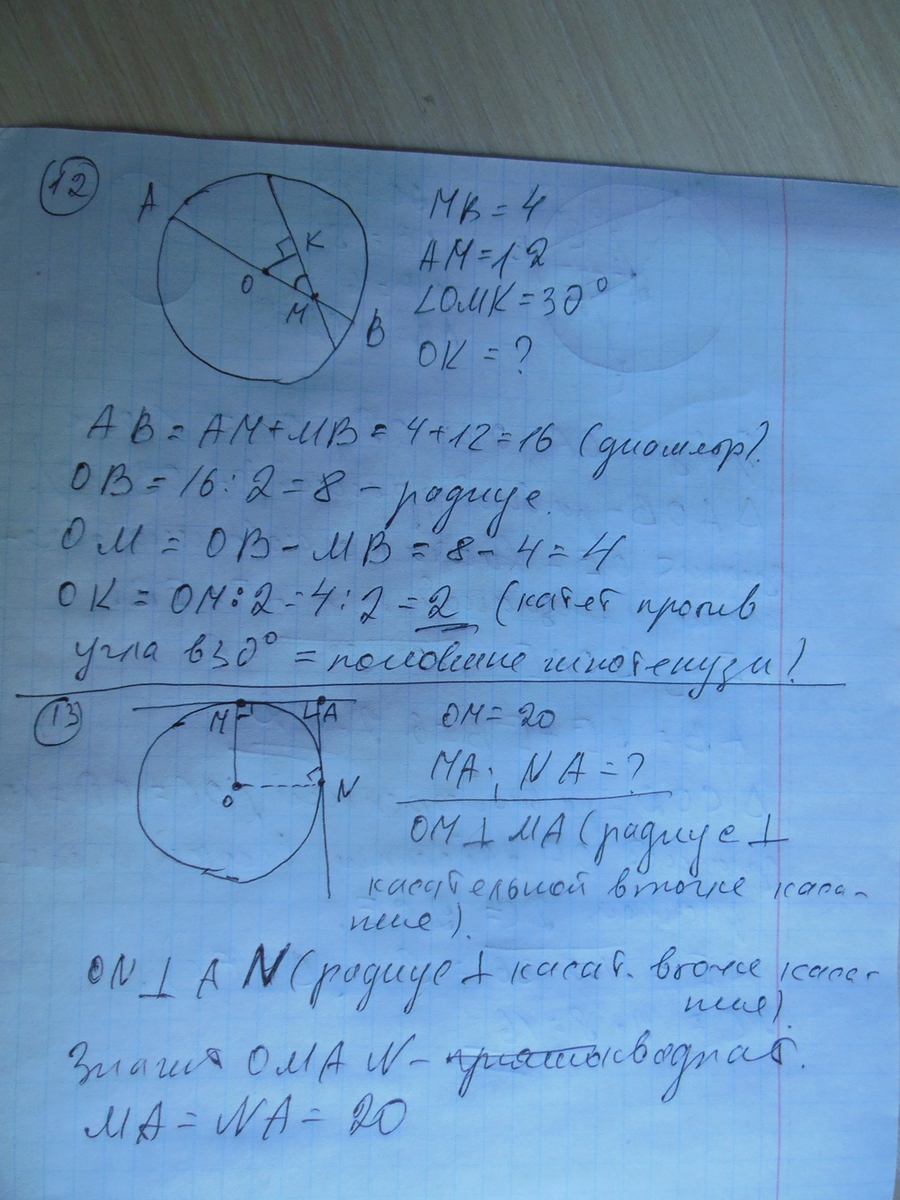 12
A
K
O
M
B
MB = 4
AM = 12
∠OMK = 30°
OK = ?
AB = AM + MB = 4 + 12 = 16 (диаметр)
OB = 16 : 2 = 8 – радиус.
OM = OB – MB = 8 – 4 = 4
OK = OM : 2 = 4 : 2 = 2 (катет против
угла в 30° = половине гипотенузы)
13
M
A
O
N
OM = 20
MA; NA = ?
OM ⊥ MA (радиус ⊥
касательной в точке каса-
ния).
ON ⊥ AN (радиус ⊥ касат. в точке каса-
ния)
Значит OMAN – квадрат.
MA = NA = 20